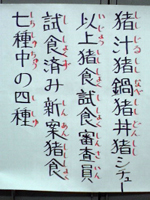 猪汁猪鍋猪丼猪シチュー
以上猪食試食審査員
試食済み新案猪食
七種中の四種